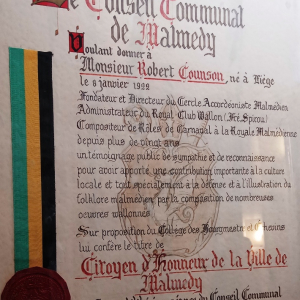 Le Conseil Communal
de Malmedy
Voulant donner à
Monsieur Robert Counson, né à Liège
le 6 janvier 1922
Fondateur et Directeur du Cercle Accordéoniste Malmédien
Administrateur du Royal Club Wallon (Fré Spirou)
Compositeur de Rôles de Carnaval à la Royale Malmédienne
depuis plus de vingt ans
un témoignage public de sympathie et de reconnaissance
pour avoir apporté une contribution importante à la culture
locale et tout spécialement à la défense et à l'illustration du
folklore malmédien par la composition de nombreuses
oeuvres wallonnes
Sur proposition du Collège des Bourgmestre et Echevins
lui confère le titre de
Citoyen d'Honneur de la Ville de
Malmedy
du Conseil Communal